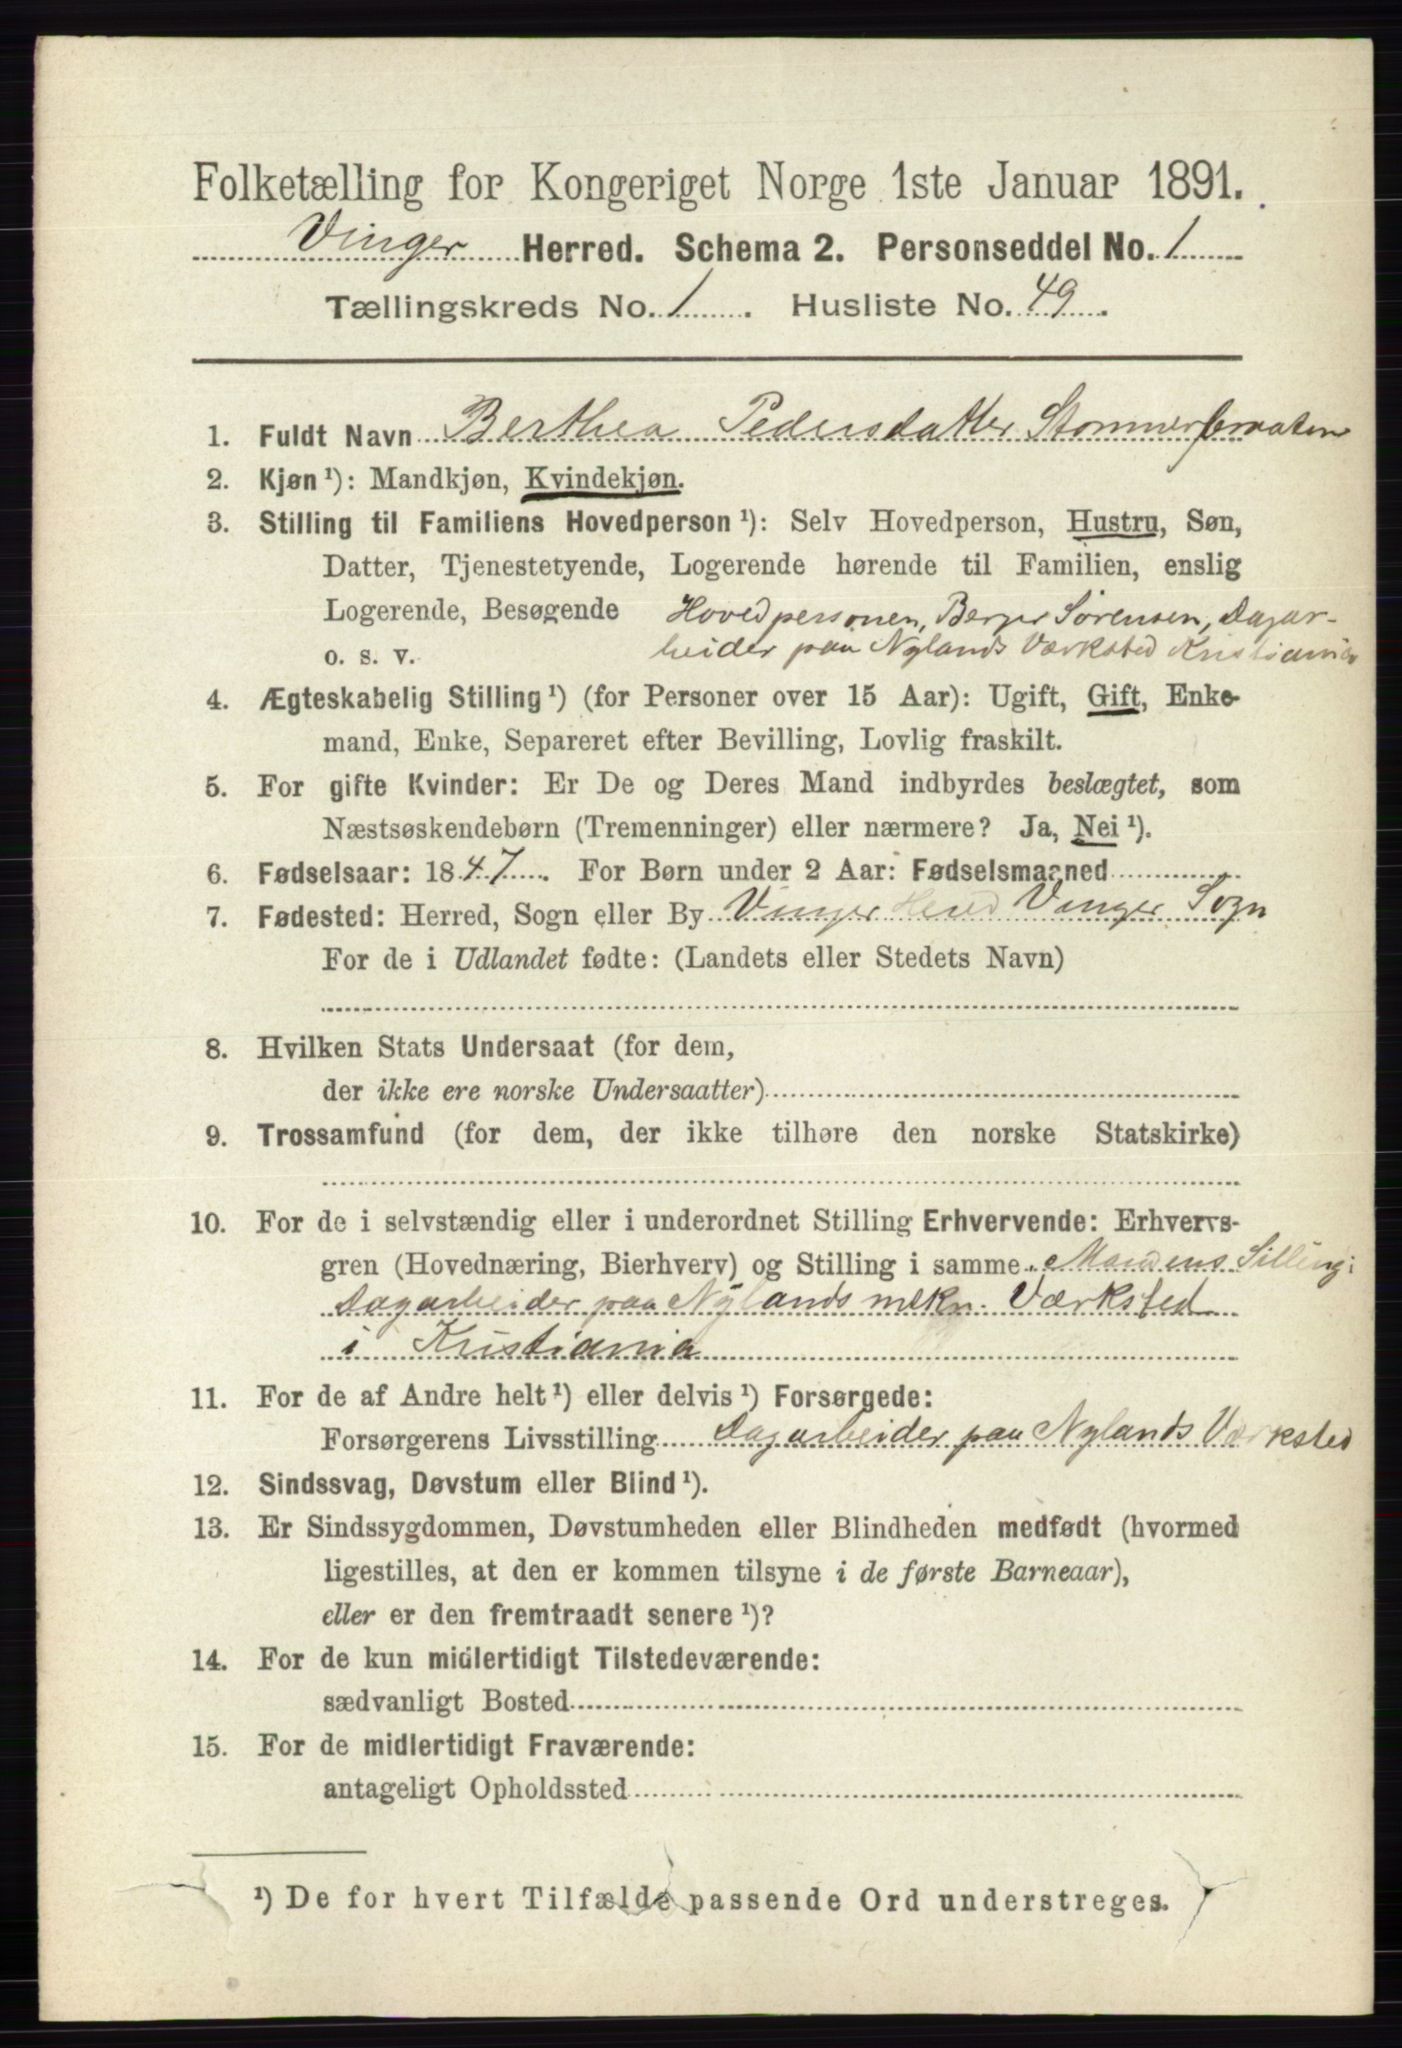 Folketælling for Kongeriget Norge 1ste Januar 1891.
Vinger Herred. Schema 2. Personseddel No. 1
Tællingskreds No. 1. Husliste No. 49.
1. Fuldt Navn Berthea Pedersdatter
2. Kjøn ¹): Mandkjøn, Kvindekjøn.
3. Stilling til Familiens Hovedperson ¹): Selv Hovedperson, Hustru, Søn,
Datter, Tjenestetyende, Logerende hørende til Familien, enslig
Logerende, Besøgende Hovedpersonen, Berger Sörensen, Dagar-
o. s. v. beider paa Nylands Værksted Kristiania
4. Ægteskabelig Stilling ¹) (for Personer over 15 Aar): Ugift, Gift, Enke-
mand, Enke, Separeret efter Bevilling, Lovlig fraskilt.
5. For gifte Kvinder: Er De og Deres Mand indbyrdes beslægtet, som
Næstsøskendebørn (Tremenninger) eller nærmere? Ja, Nei ¹).
6. Fødselsaar: 1847. For Børn under 2 Aar: Fødselsmaaned
7. Fødested: Herred, Sogn eller By Vinger Herred Vinger Sogn
For de i Udlandet fødte: (Landets eller Stedets Navn)
8. Hvilken Stats Undersaat (for dem,
der ikke ere norske Undersaatter)
9. Trossamfund (for dem, der ikke tilhøre den norske Statskirke)
10. For de i selvstændig eller i underordnet Stilling Erhvervende: Erhvervs-
gren (Hovednæring, Bierhverv) og Stilling i samme Mandens Silling:
Dagarbeider paa Nylands mekn. Værksted
i Kristiania
11. For de af Andre helt ¹) eller delvis ¹) Forsørgede:
Forsørgerens Livsstilling Dagarbeider paa Nylands Værksted
12. Sindssvag, Døvstum eller Blind ¹).
13. Er Sindssygdommen, Døvstumheden eller Blindheden medfødt (hvormed
ligestilles, at den er kommen tilsyne i de første Barneaar),
eller er den fremtraadt senere ¹)?
14. For de kun midlertidigt Tilstedeværende:
sædvanligt Bosted
15. For de midlertidigt Fraværende:
antageligt Opholdssted
¹) De for hvert Tilfælde passende Ord understreges.